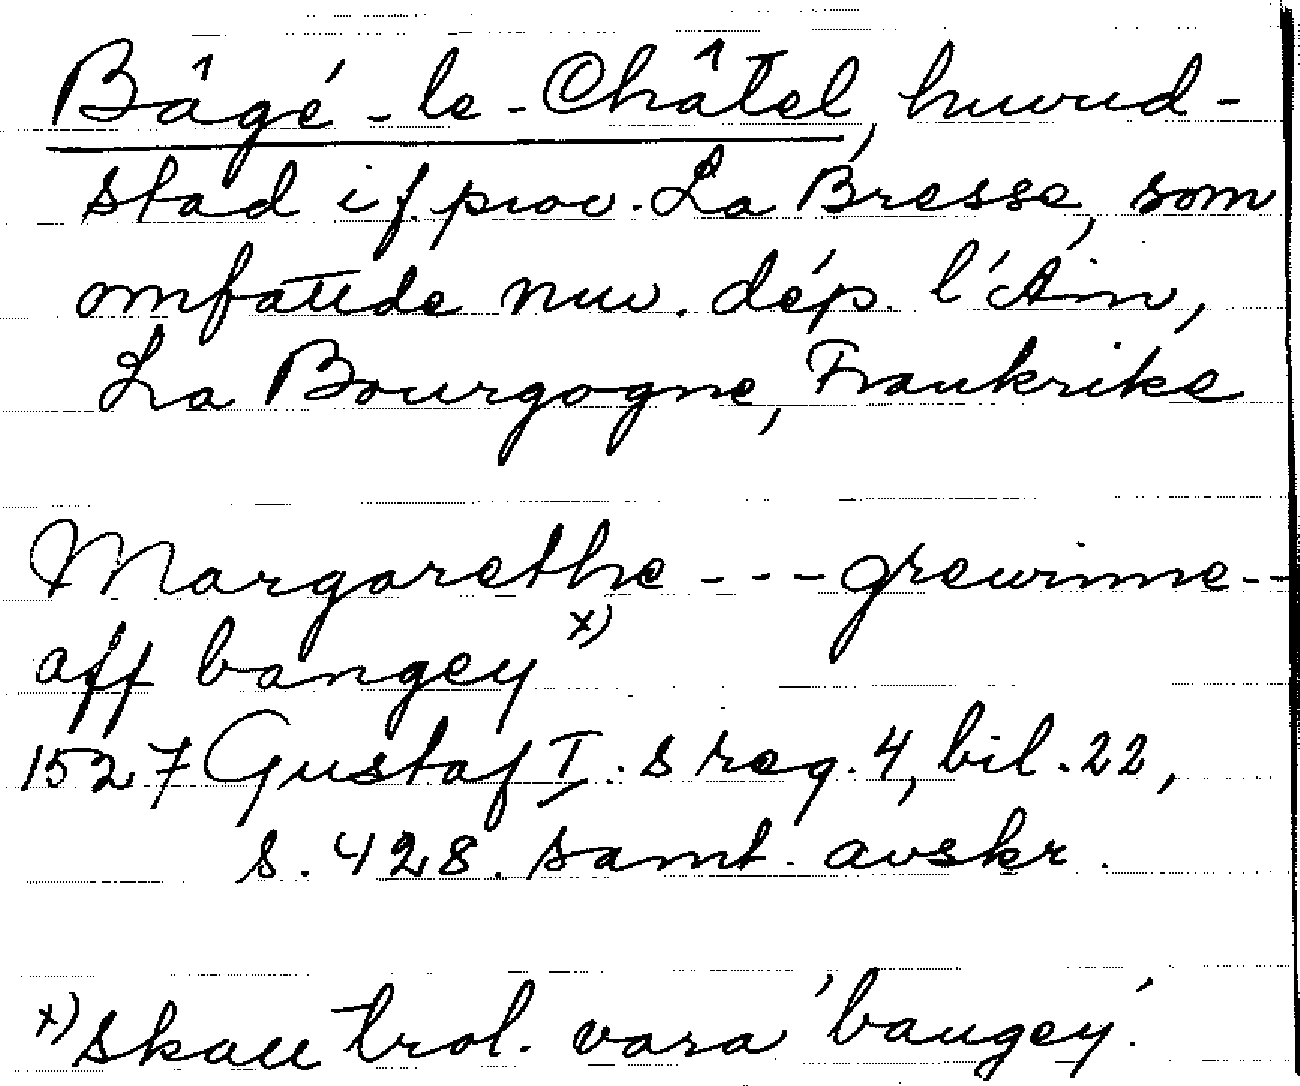 Bâgé-le-Châtel, huvud-
stad i f. prov. La Bresse, som
omfattde nuv. dép. l'Ain,
La Bourgogne, Frankrike
Margarethe --- grewinne --
aff bangey x)
1527 Gustaf I. s reg. 4, bil. 22,
s. 428. samt. avskr.
x) skall trol. vara 'baugey'.